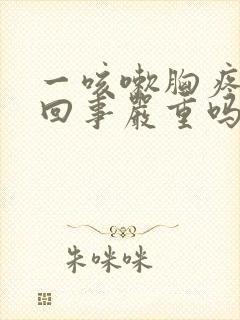 一咳嗽胸疼
回事严重吗
朱咪咪